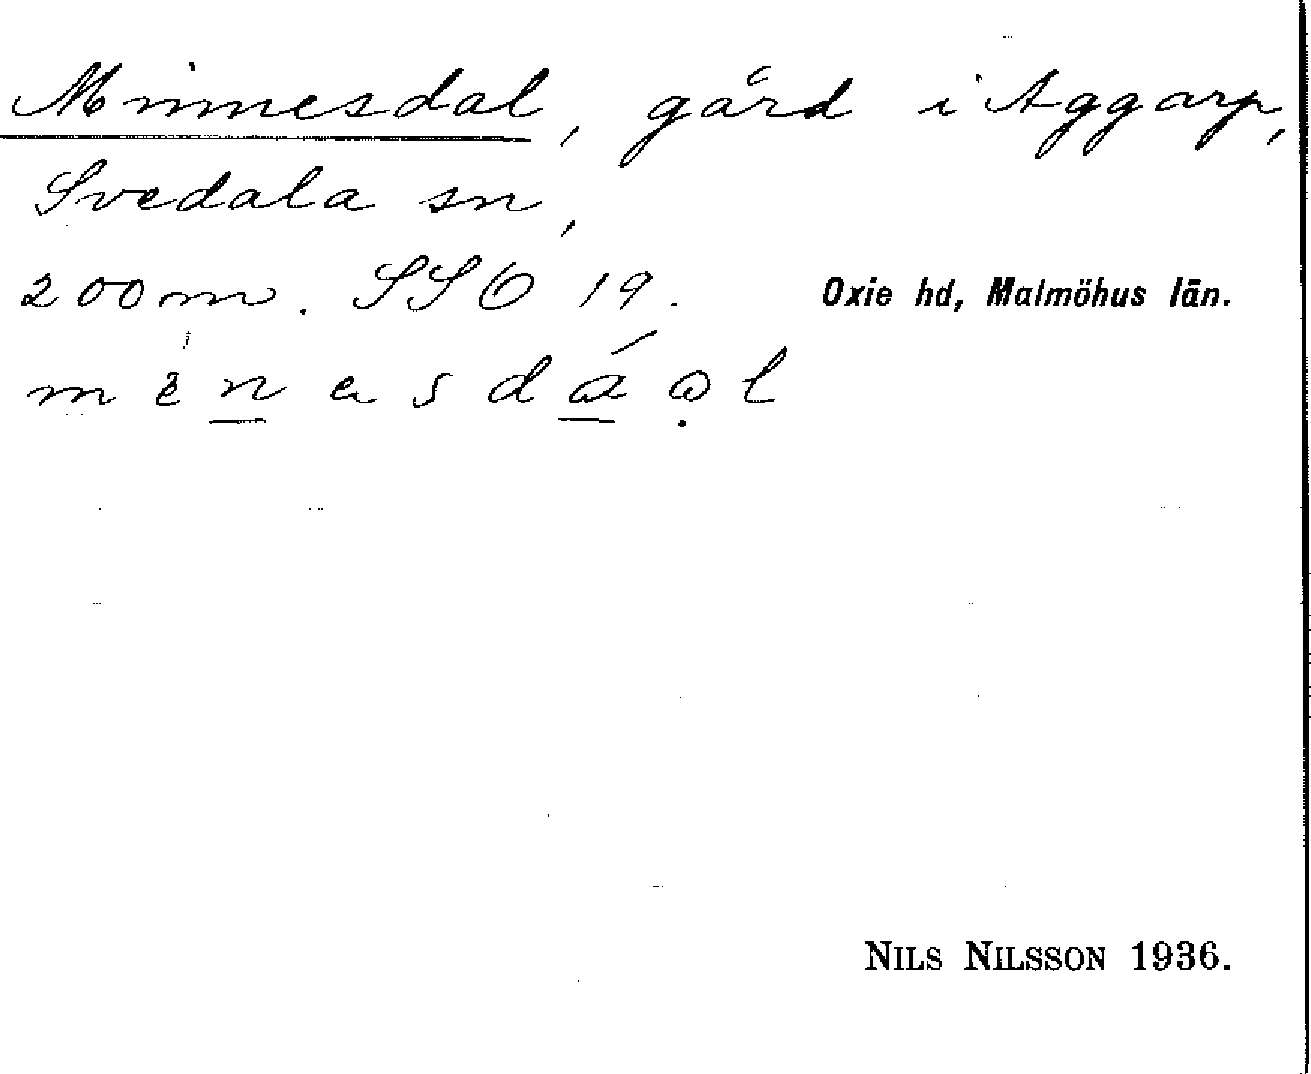 Minnesdal, gård i Aggarp,
Svedala sn,
200 m. SSO 19. Oxie hd, Malmöhus län.
NILS NILSSON 1936.